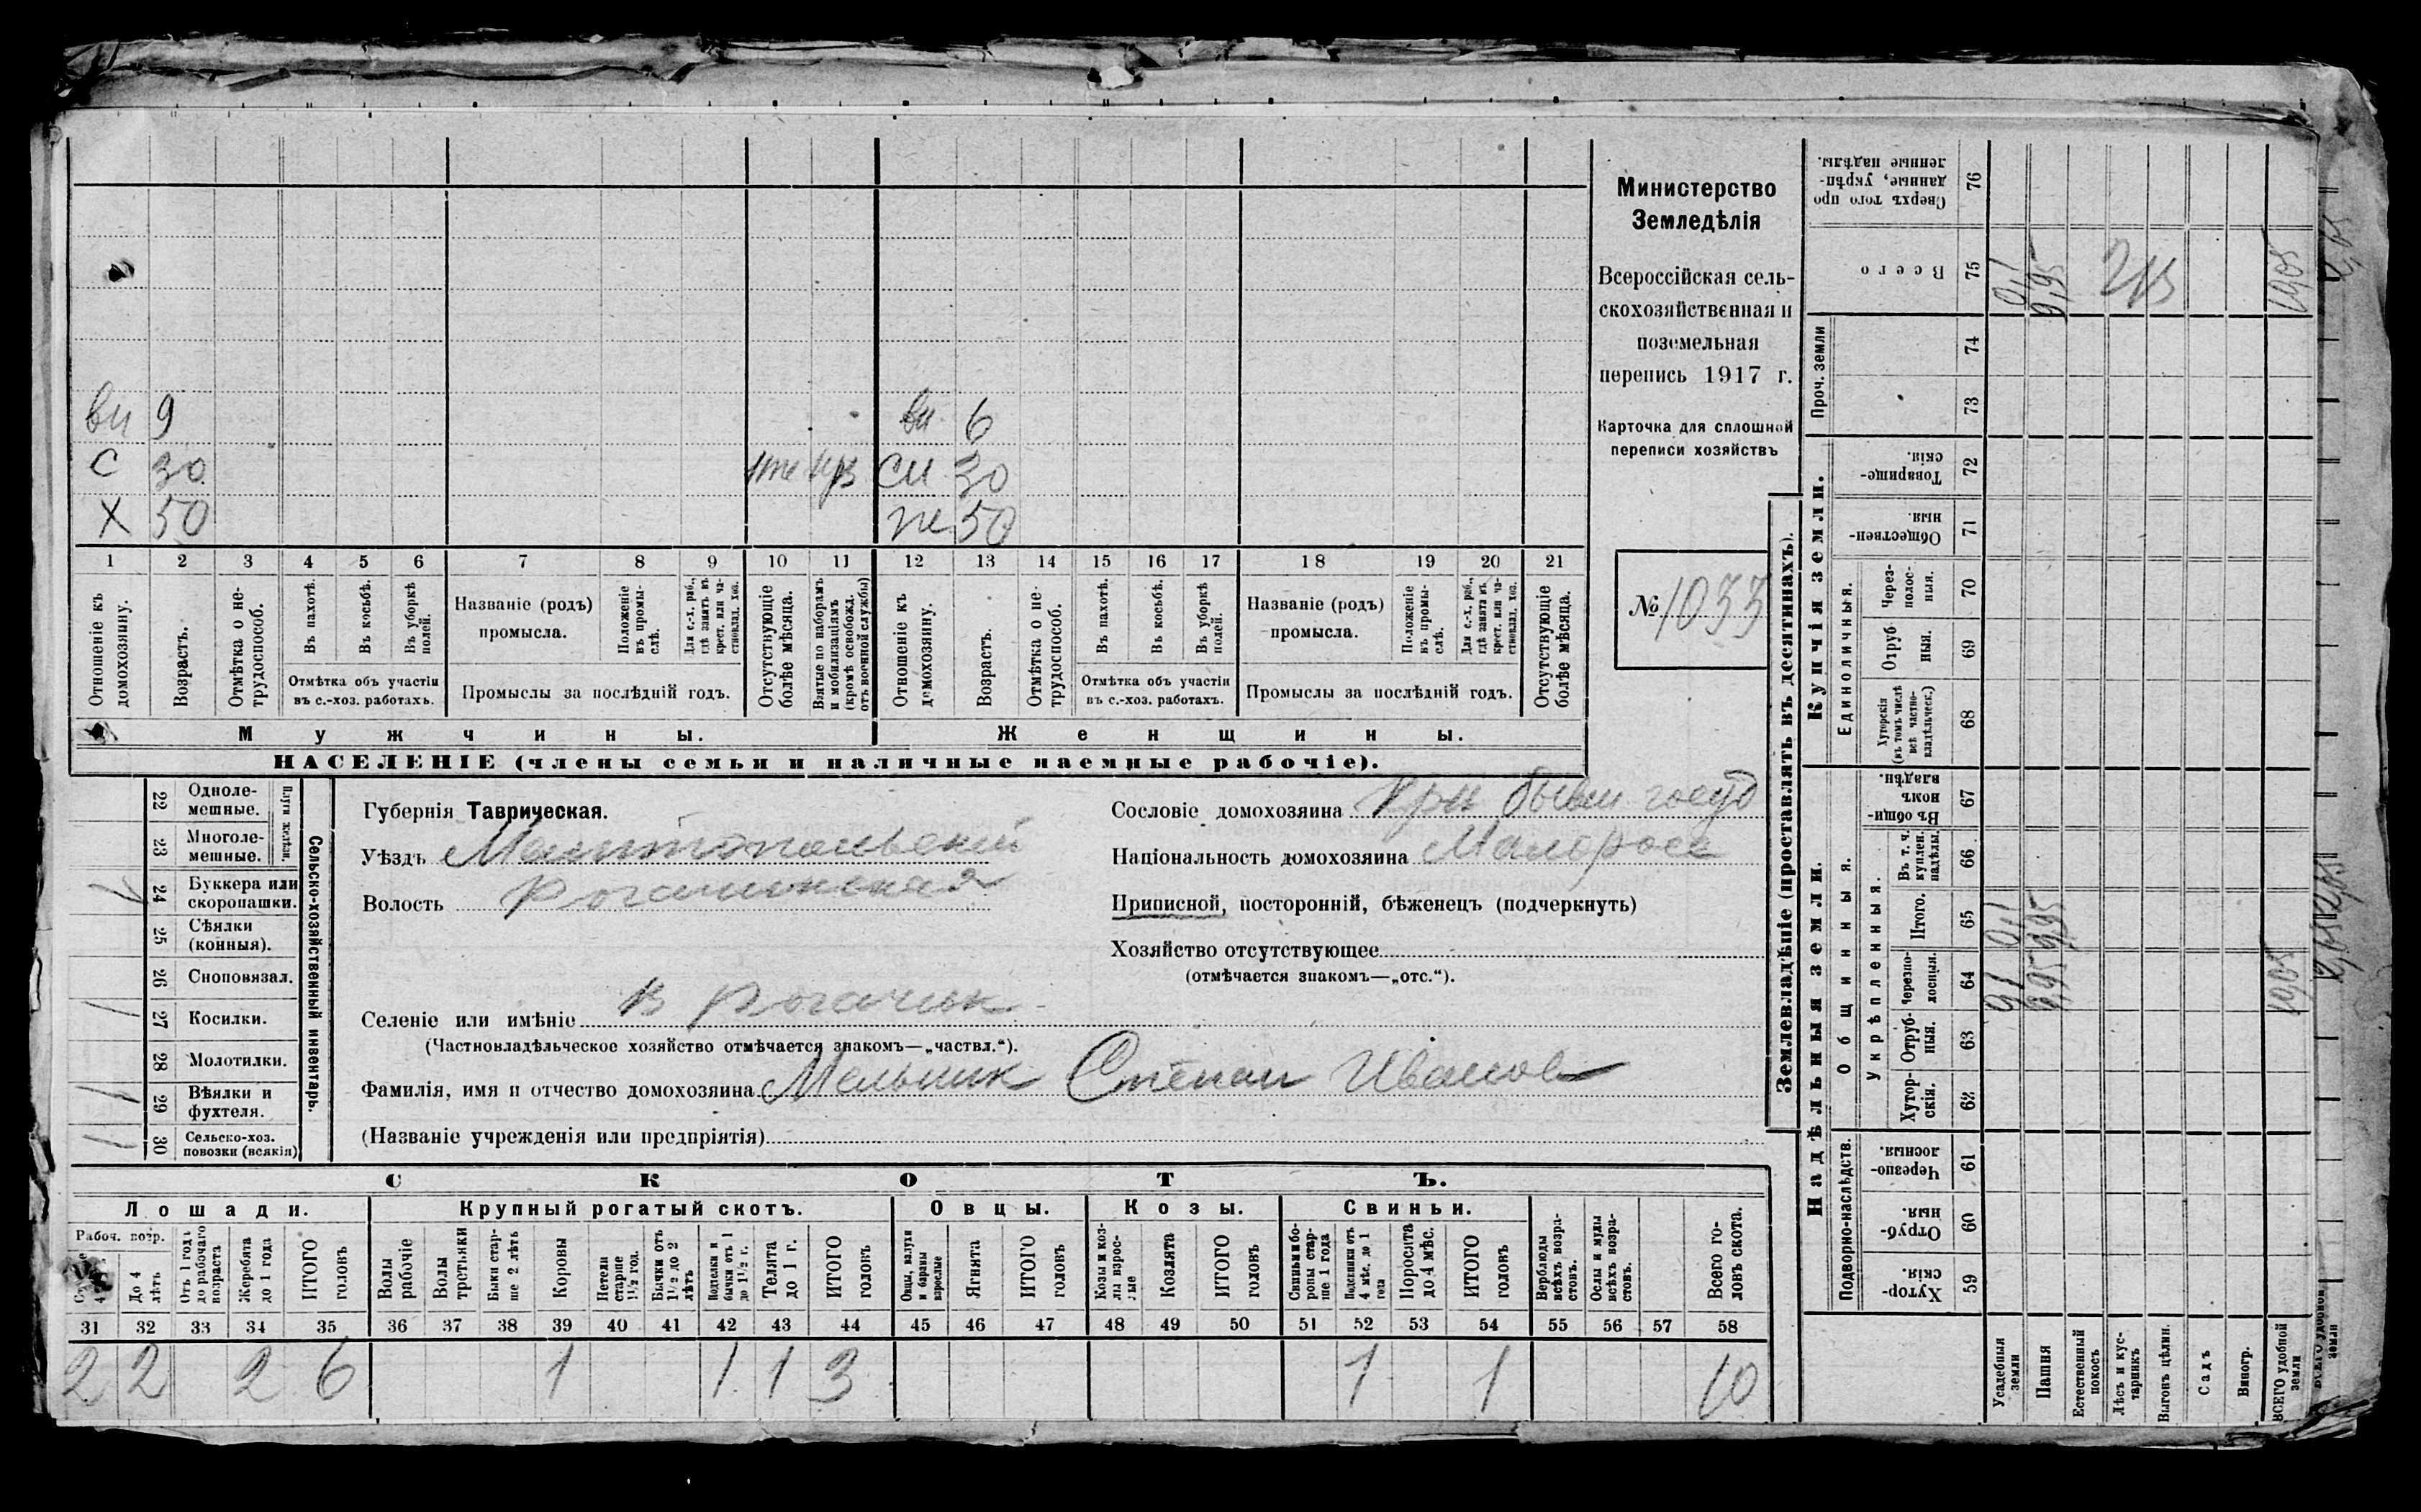 Министерство
Земледѣлія
Всероссійская сель-
скохозяйственная и
поземельная
перепись 1917 г.
Карточка для сплошной
переписи хозяйствъ
№ 1033
вн 9 вн 6
С 30 сн 30
Х 50 же 50
1 2 3 4 5 6 7 8 9 10 11 12 13 14 15 16 17 18 19 20 21
Отношеніе къ домохозяину.
Возрастъ.
Отмѣтка о не-
трудоспособ.
Въ пахотѣ.
Въ косьбѣ.
Въ уборкѣ
полей.
Отмѣтка объ участіи
въ с.-хоз. работахъ.
Названіе (родъ)
промысла.
Положеніе
въ промы-
слѣ.
Для с.-х. раб.,
гдѣ занятъ въ
крест. или ча-
стновлад. хоз.
Промыслы за послѣдній годъ.
Отсутствующіе
болѣе мѣсяца.
Взятые по наборамъ
и мобилизаціямъ
(кромѣ освобожд.
отъ военной службы)
Отношеніе къ
домохозяину.
Возрастъ.
Отмѣтка о не-
трудоспособ.
Въ пахотѣ.
Въ косьбѣ.
Въ уборкѣ
полей.
Отмѣтка объ участіи
въ с.-хоз. работахъ.
Названіе (родъ)
промысла.
Положеніе
въ промы-
слѣ.
Для с.-х. раб.,
гдѣ занята въ
крест. или ча-
стновлад. хоз.
Промыслы за послѣдній годъ.
Отсутствующіе
болѣе мѣсяца.
Мужчины.
Женщины.
НАСЕЛЕНІЕ (члены семьи и наличные наемные рабочіе).
Сельско-хозяйственный инвентарь.
Плуги желѣзн.
22 Одноле-
мешные.
23 Многоле-
мешные.
24 Буккера или
скоропашки.
25 Сѣялки
(конныя).
26 Сноповязал.
27 Косилки.
1
28 Молотилки.
29 Вѣялки и
фухтеля.
1
30 Сельско-хоз.
повозки (всякія)
1
Губернія Таврическая.
Уѣздъ Мелитопольскій
Волость Рогачинская
Сословіе домохозяина Крн бывш госуд
Національность домохозяина Малоросс
Приписной, посторонній, бѣженецъ (подчеркнуть)
Хозяйство отсутствующее
(отмѣчается знакомъ—„отс.“).
Селеніе или имѣніе В Рогачик
(Частновладѣльческое хозяйство отмѣчается знакомъ—„частвл.“).
Фамилія, имя и отчество домохозяина Мельник Степан Иванов
(Названіе учрежденія или предпріятія)
СКОТЪ.
Лошади.
Крупный рогатый скотъ.
Овцы.
Козы.
Свиньи.
Рабоч. возр.
До 4
лѣтъ
Отъ 1 года
до рабочаго
возраста
Жеребята
до 1 года
ИТОГО
головъ
Волы
рабочіе
Волы
третьяки
Быки стар-
ше 2 лѣтъ
Коровы
Нетели
старше
1½ год.
Бычки отъ
1½ до 2
лѣтъ
Телки и
бычки отъ 1
до 1½ г.
Телята
до 1 г.
ИТОГО
головъ
Овцы, валухи
и бараны
взрослые
Ягнята
ИТОГО
головъ
Козы и коз-
лы взрос-
лые
Козлята
ИТОГО
головъ
Свиньи и бо-
ровы стар-
ше 1 года
Подсвинки отъ
4 мѣс. до 1
года
Поросята
до 4 мѣс.
ИТОГО
головъ
Верблюды
всѣхъ возра-
стовъ.
Ослы и мулы
всѣхъ возра-
стовъ.
Всего го-
ловъ скота.
31 32 33 34 35 36 37 38 39 40 41 42 43 44 45 46 47 48 49 50 51 52 53 54 55 56 57 58
2 2 2 6 1 1 1 3 1 1 10
Землевладѣніе (проставлять въ десятинахъ).
Надѣльныя земли.
Купчія земли.
Проч. земли
Подворно-наслѣдств.
Общинныя.
Укрѣпленныя.
Единоличныя.
Сверхъ того про
данные, укрѣп-
ленные надѣлы. 76
Всего 75
74
73
Товарище-
скія. 72
Обществен-
ныя. 71
Через-
полос-
ныя. 70
Отруб-
ныя. 69
Хуторскія
(въ томъ числѣ
всѣ частно-
владѣльческ.) 68
Въ общи-
номъ
владѣн. 67
Въ т. ч.
куплен.
надѣлы. 66
Итого. 65
Черезпо-
лосныя. 64
Отруб-
ныя. 63
Хутор-
скія. 62
Черезпо-
лосныя. 61
Отруб-
ныя. 60
Хутор-
скія. 59
Усадебныя
земли
Пашня
Естественный
покосъ
Лѣсъ и кус-
тарникъ
Выгонъ цѣлин.
Садъ
Виногр.
ВСЕГО удобной
земли
9,1 9,1 9,1
9,95 9,95 9,95